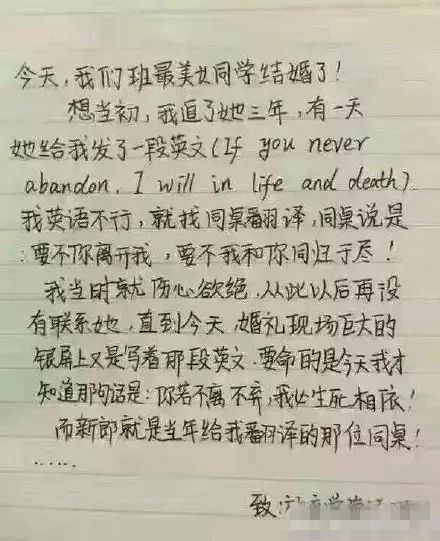 今天,我们班最美女同学结婚了!
想当初,我追了她三年,有一天
她给我发了一段英文(If you never
abandon, I will in life and death)
我英语不行,就找同桌翻译,同桌说是
:要不你离开我,要不我和你同归于尽!
我当时就伤心欲绝,从此以后再没
有联系她,直到今天,婚礼现场巨大的
银屏上又是写着那段英文.要命的是今天我才
知道那句话是:你若不离不弃,我必生死相依!
而新郎就是当年给我翻译的那位同桌!
……
致: